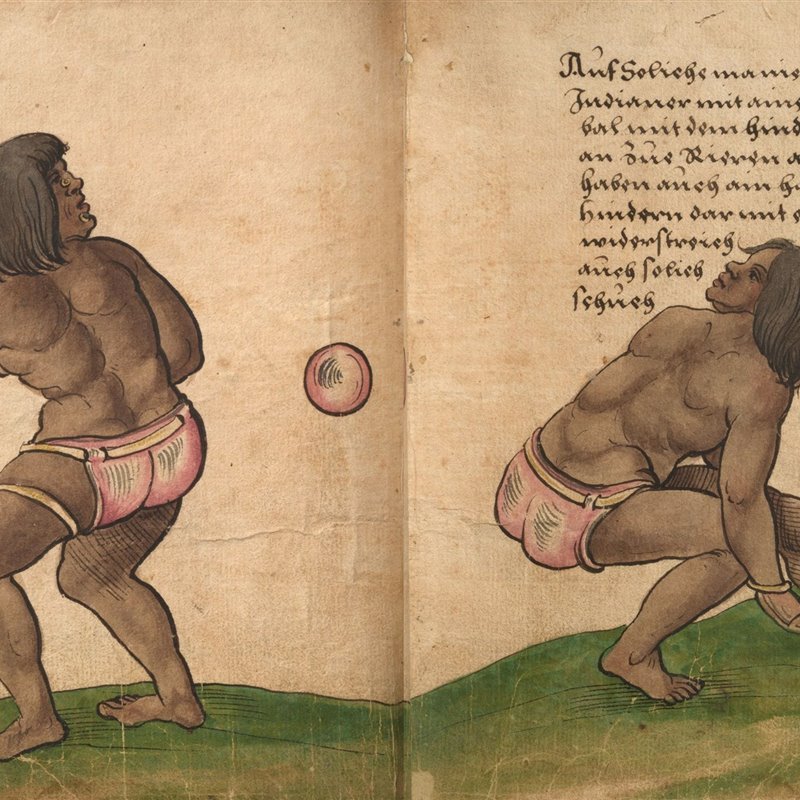 Auf Soliche manie
Indianer mit aine
bal mit dem hind
an Zue Rieren a
haben auch ain ha
hindern dar mit e
widerstreich
auch solich
schuch